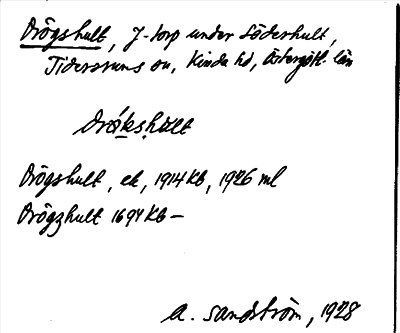 Drögshult, J-torp under Söderhult,
Tidersrums sn, Kinda hd, Östergötl. län
Drö́kshu̢lt
Drögshult, ek, 1914 Kb, 1926 ml
Drögzhult 1694 Kb –
A. Sandström, 1928